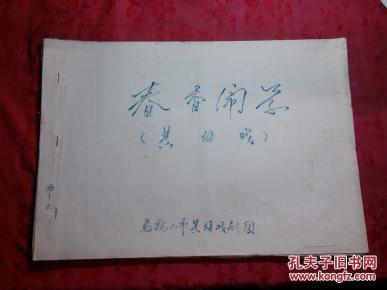 春香闹学
(黄梅戏)
马鞍山市黄梅戏剧团
孔夫子旧书网